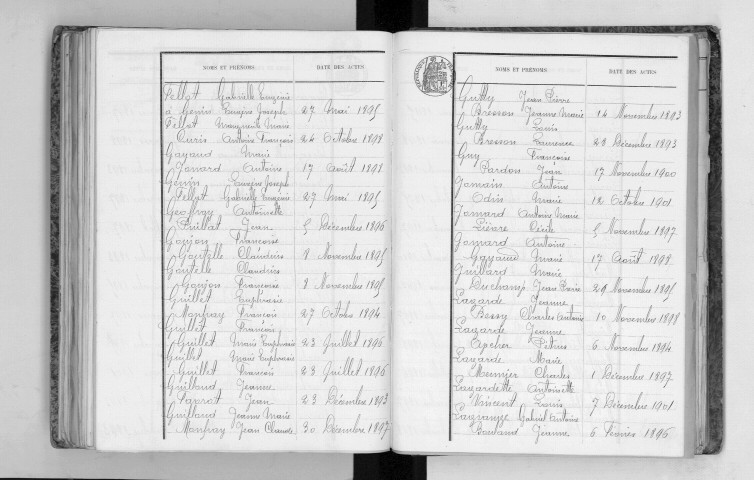 NOMS ET PRÉNOMS DATE DES ACTES
Fellot Gabrielle Eugénie
à Genin Eugène Joseph 27 Mai 1895
Fellot Marguerite Marie
Curis Antoine François 24 Octobre 1898
Gayaud Marie
Jomard Antoine 17 Août 1898
Genin Eugène Joseph
Fellot Gabrielle Eugénie 27 Mai 1895
Geoffray Antoinette
Puillat Jean 5 Décembre 1896
Gonjon Françoise
Goutelle Claudius 8 Novembre 1895
Goutelle Claudius
Gonjon Françoise 8 Novembre 1895
Guillet Euphrasie
Monfray François 27 Octobre 1894
Guillet François
Guillet Marie Euphrasie 23 Juillet 1896
Guillet Marie Euphrasie
Guillet François 23 Juillet 1896
Guilloud Jeanne
Jean 23 Décembre 1893
Guilloud Jeanne Marie
Monfray Jean Claude 30 Décembre 1897
NOMS ET PRÉNOMS DATE DES ACTES
Gutty Jean Pierre
Bresson Jeanne Marie 14 Novembre 1893
Gutty Louis
Bresson Laurence 28 Décembre 1893
Guy Françoise
Pardon Jean 17 Novembre 1900
Jomain Antoine
Odin Marie 12 Octobre 1901
Jomard Antoine Marie
Liévre Cécile 5 Novembre 1897
Jomard Antoine
Gayaud Marie 17 Août 1898
Juillard Marie
Duchamp Jean Marie 29 Novembre 1895
Lagarde Jeanne
Bessy Charles Antoine 10 Novembre 1898
Lagarde Jeanne
Epcher Pétrus 6 Novembre 1894
Lagarde Marie
Meunier Charles 1 Décembre 1897
Lagardette Antoinette
Vincent Louis 7 Décembre 1901
Lagrange Gabriel Antoine
Jeanne 6 Février 1896